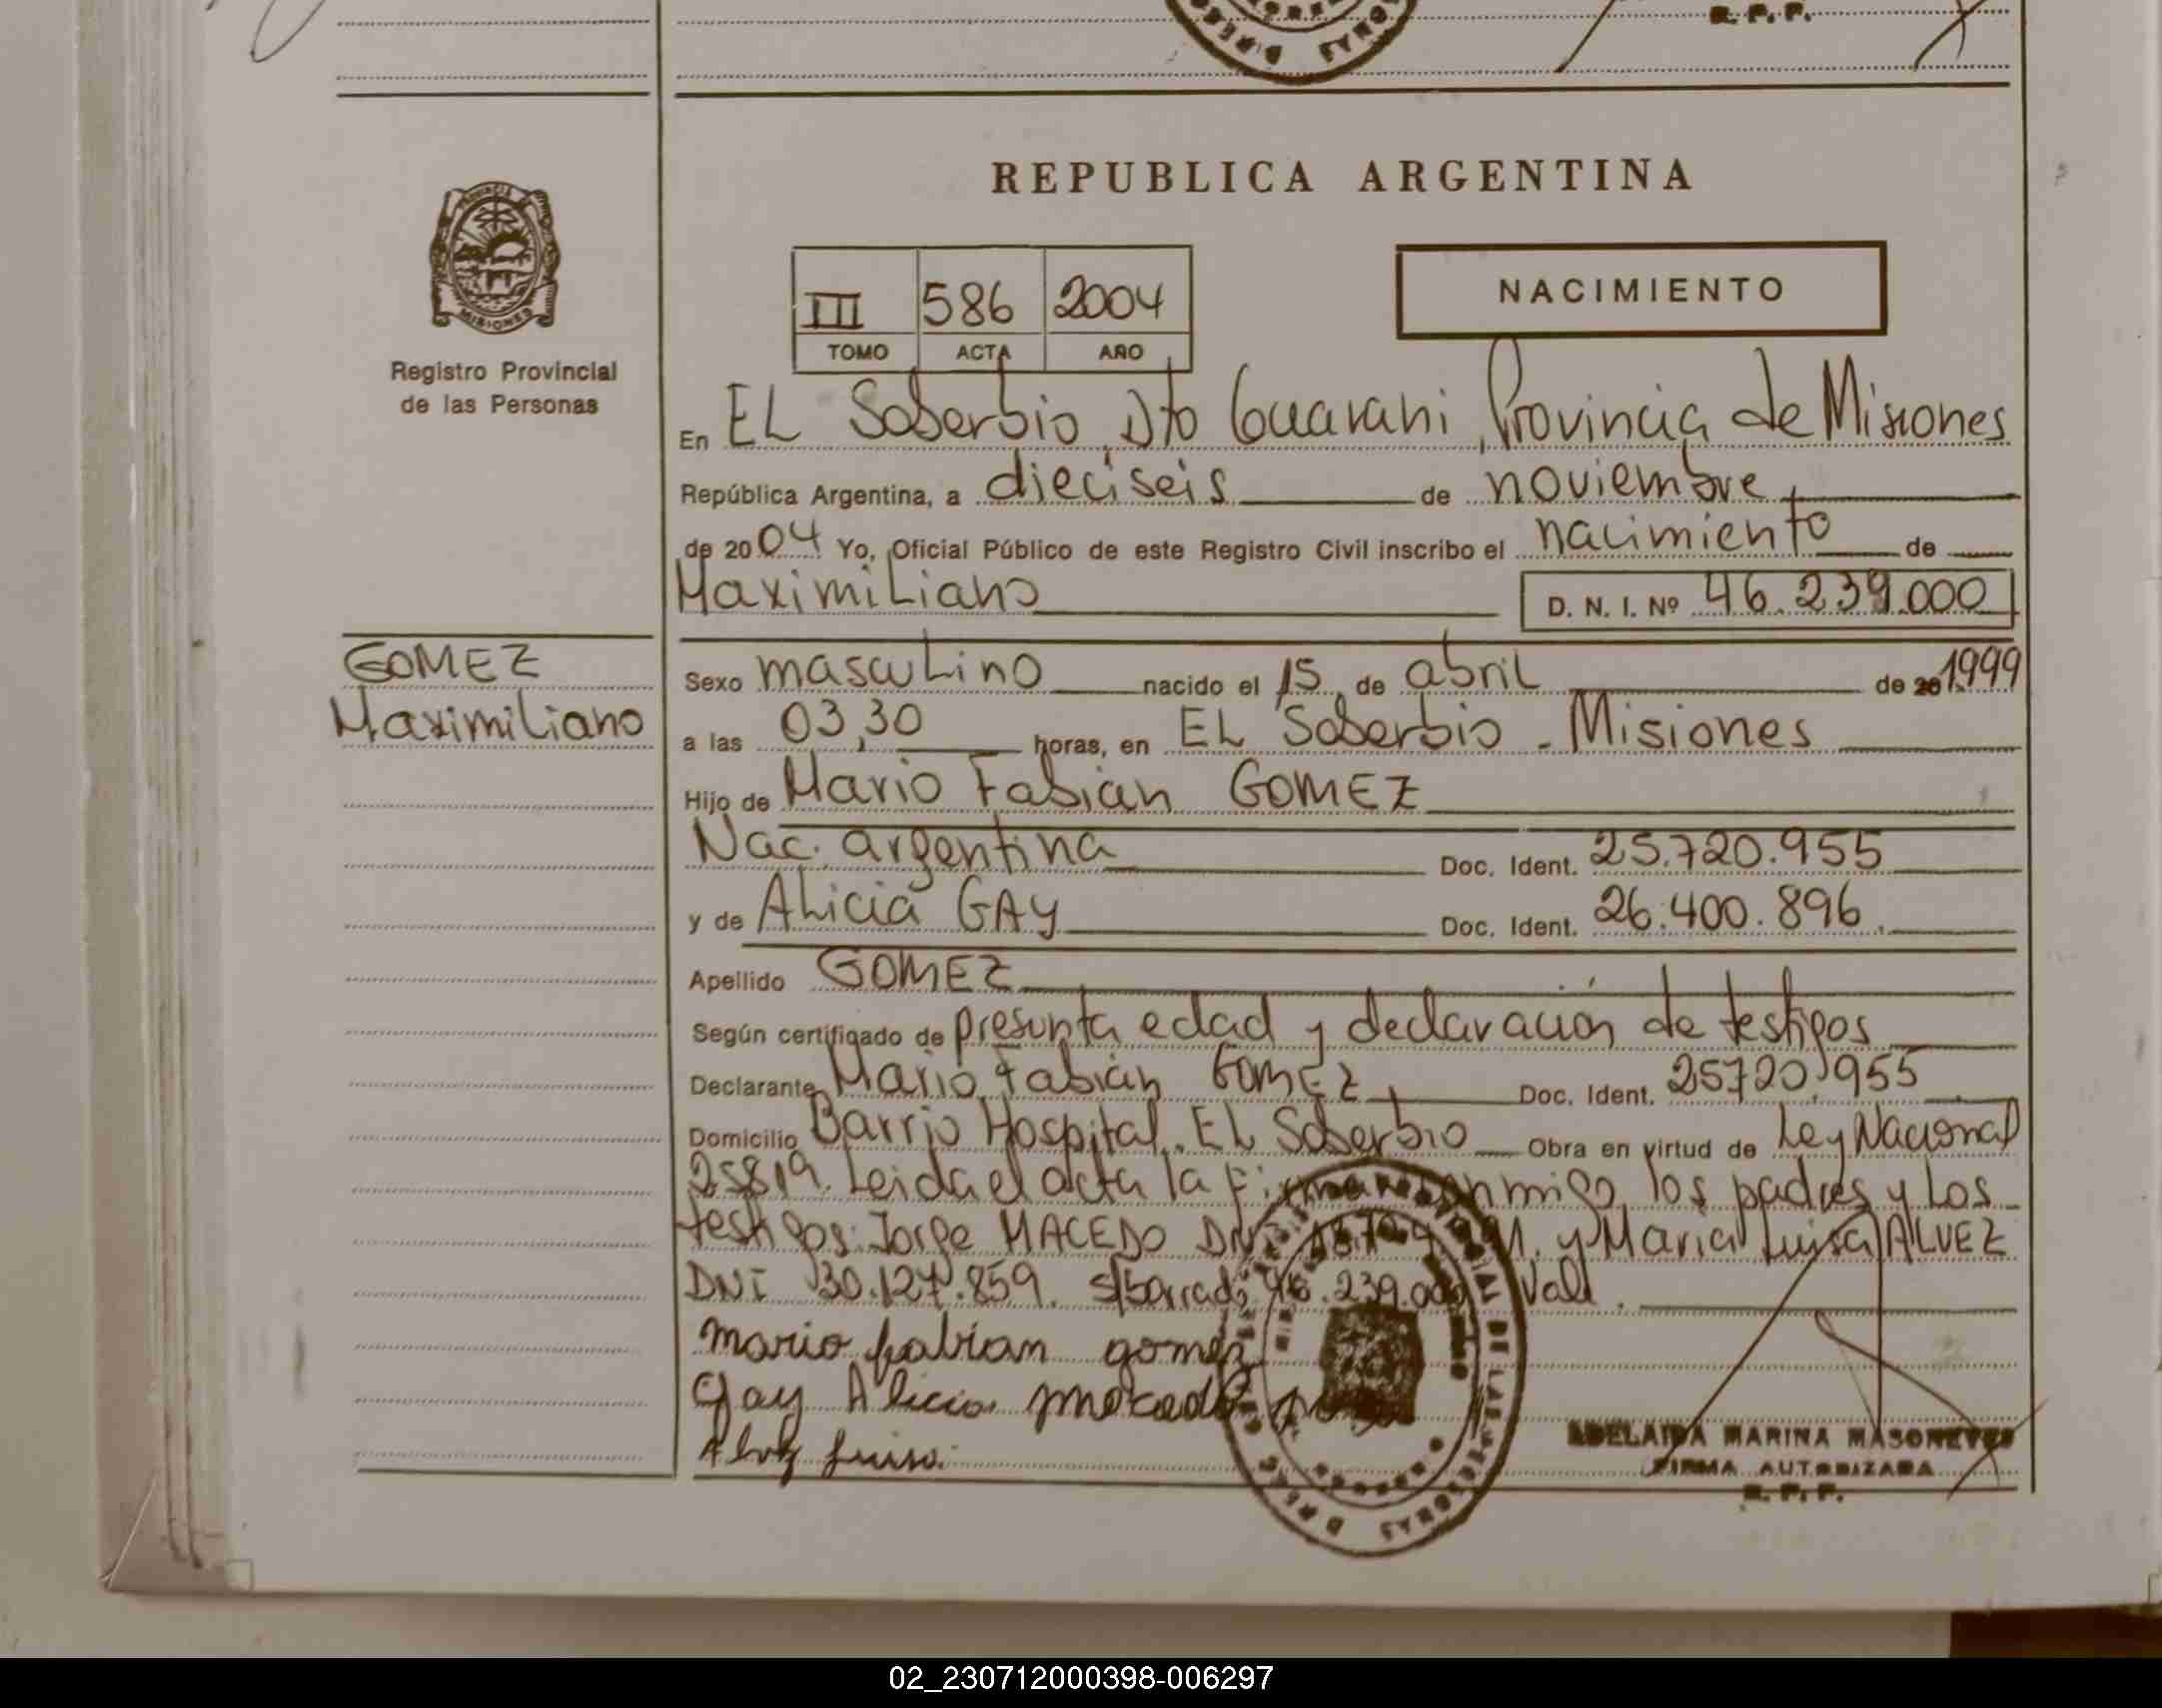 R. P. P.
REPUBLICA ARGENTINA
III 586 2004
TOMO ACTA AÑO
NACIMIENTO
PROVINCIA
MISIONES
Registro Provincial
de las Personas
En EL Soberbio, Dto Guarani, Provincia de Misiones
República Argentina, a dieciseis de noviembre
de 2004 Yo, Oficial Público de este Registro Civil inscribo el nacimiento de
Maximiliano D. N. I. Nº 46.239.000
GOMEZ
Maximiliano
Sexo masculino nacido el 15 de abril de 20 1999
a las 03,30 horas, en EL Soberbio - Misiones
Hijo de Mario Fabian GOMEZ
Nac. argentina Doc. Ident. 25.720.955
y de Alicia GAY Doc. Ident. 26.400.896
Apellido GOMEZ
Según certificado de presunta edad y declaración de testigos
Declarante Mario Fabián GOMEZ Doc. Ident. 25720.955
Domicilio Barrio Hospital. EL Soberbio Obra en virtud de Ley Nacional
25819. Leida el acta la firman conmigo los padres y los
testigos: Jorge MACEDO DNI y Maria Luisa ALVEZ
DNI 30.127.859. s/borrado 46.239.000 Vale
mario fabian gomez
Gay Alicia
Luisa
ADELAIDA MARINA MASONEVES
FIRMA AUTORIZADA
R. P. P.
02_230712000398-006297